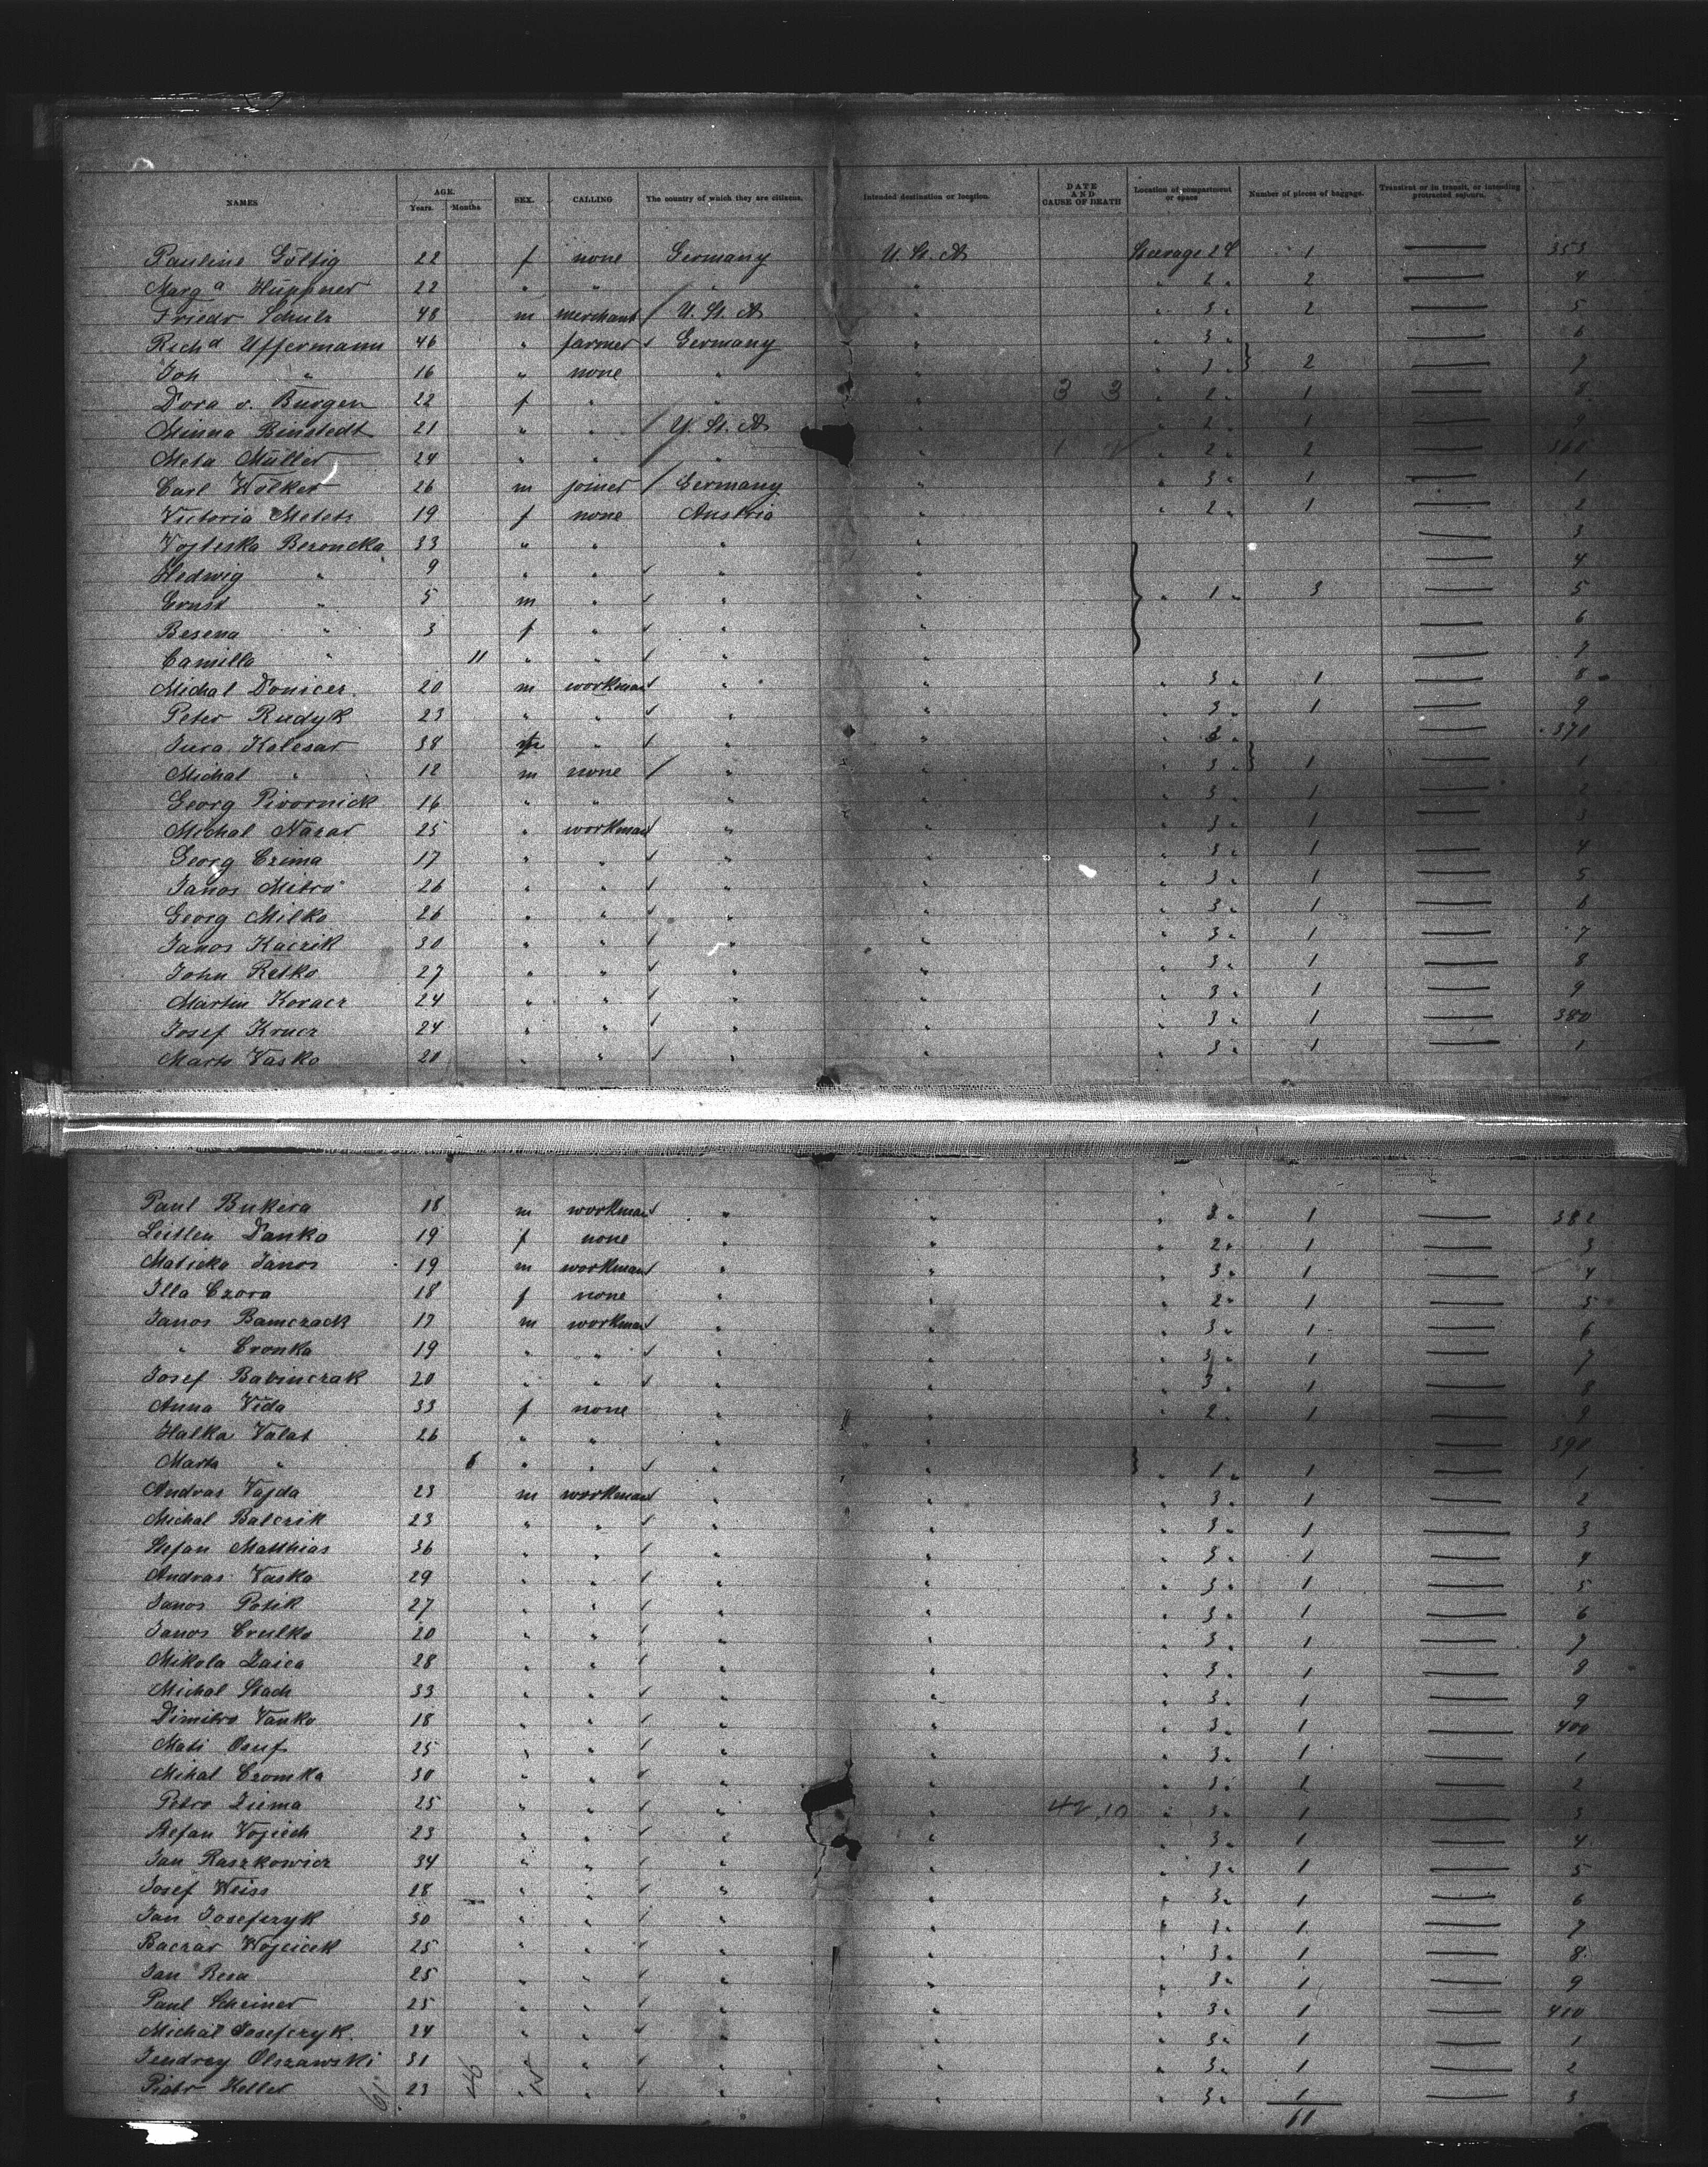 NAMES AGE. Years. Months SEX. CALLING The country of which they are citizens. Intended destination or location. DATE AND CAUSE OF DEATH Location of compartment or space Number of pieces of baggage. Transient or in transit, or intending protracted sojourn.
Pauline Göltig 22 f none Germany U. St. A Steerage 2 1 — 353
Marg a Huppner 22 " " " " " 2 " 2 — 4
Friedr Schulz 48 m merchant / U. St. A " " 3 " 2 — 5
Rich d Uffermann 46 " farmer Germany " " 3 " — 6
Joh " 16 " none " " " 3 " 2 — 7
Dora v. Burgen 22 f " " " 3 3 " 2 " 1 — 8
Minna Binstedt 21 " " / U. St. A " " 2 " 1 — 9
Meta Müller 24 " " " " 1 " 2 " 2 — 360
Carl Wölker 26 m joiner / Germany " " 3 " 1 — 1
Victoria Metetz 19 f none Austria " " 2 " 1 — 2
Vojteska Beroncka 33 " " " " — 3
Hedwig " 9 " " " " — 4
Ernst " 5 m " " " " 1 " 3 — 5
Besena " 3 f " " " — 6
Camilla " 11 " " " " — 7
Michal Donicer 20 m workman " " " 3 " 1 — 8
Peter Rudyk 23 " " " " " 3 " 1 — 9
Jura Kolesar 38 m " " " " 3 " — 370
Michal " 12 m none / " " " 3 " 1 — 1
Georg Pivornick 16 " " " " " 3 " 1 — 2
Michal Nazar 25 " workman " " " 3 " 1 — 3
Georg Czima 17 " " " " " 3 " 1 — 4
Janos Mitro 26 " " " " " 3 " 1 — 5
Georg Milko 26 " " " " " 3 " 1 — 6
Janos Kaczik 30 " " " " " 3 " 1 — 7
John Retko 27 " " " " " 3 " 1 — 8
Martin Kovacz 24 " " " " " 3 " 1 — 9
Josef Krucz 24 " " " " " 3 " 1 — 380
Marto Vasko 20 " " " " " 3 " 1 — 1
Paul Bukera 18 m workman " " " 3 " 1 — 382
Danko 19 f none " " " 2 " 1 — 3
Maticka Janos 19 m workman " " " 3 " 1 — 4
Illa Czora 18 f none " " " 2 " 1 — 5
Janos Bamczack 17 m workman " " " 3 " 1 — 6
" Cronka 19 " " " " " 3 " 1 — 7
Josef Babinczak 20 " " " " " 3 " 1 — 8
Anna Vida 33 f none " " " 2 " 1 — 9
Halka Valat 26 " " — 390
Marta " 6 " " " " " 1 " 1 — 1
Andras Vajda 23 m workman " " " 3 " 1 — 2
Michal Balczik 23 " " " " " 3 " 1 — 3
Stefan Matthias 36 " " " " " 3 " 1 — 4
Andras Vasko 29 " " " " " 3 " 1 — 5
Janos Potik 27 " " " " " 3 " 1 — 6
Janos Crulko 20 " " " " " 3 " 1 — 7
Mikola Zaica 28 " " " " " 3 " 1 — 8
Michal Stach 33 " " " " " 3 " 1 — 9
Dimitro Vanko 18 " " " " " 3 " 1 — 400
Mati Osuf 25 " " " " " 3 " 1 — 1
Mihal Czomka 30 " " " " " 3 " 1 — 2
Petro Ziema 25 " " " " 42,10 " 3 " 1 — 3
Stefan Vojiech 23 " " " " " 3 " 1 — 4
Jan Raszkowicz 34 " " " " " 3 " 1 — 5
Josef Weiss 28 " " " " " 3 " 1 — 6
Jan Josefczyk 30 " " " " " 3 " 1 — 7
Baczar Wojcicek 25 " " " " " 3 " 1 — 8
Jan Resa 25 " " " " " 3 " 1 — 9
Paul Scheiner 25 " " " " " 3 " 1 — 410
Michal Josefczyk 24 " " " " " 3 " 1 — 1
Jendrey Olszawski 31 " " " " " 3 " 1 — 2
Piotr Keller 23 " " " " " 3 " 1 — 3
61
61